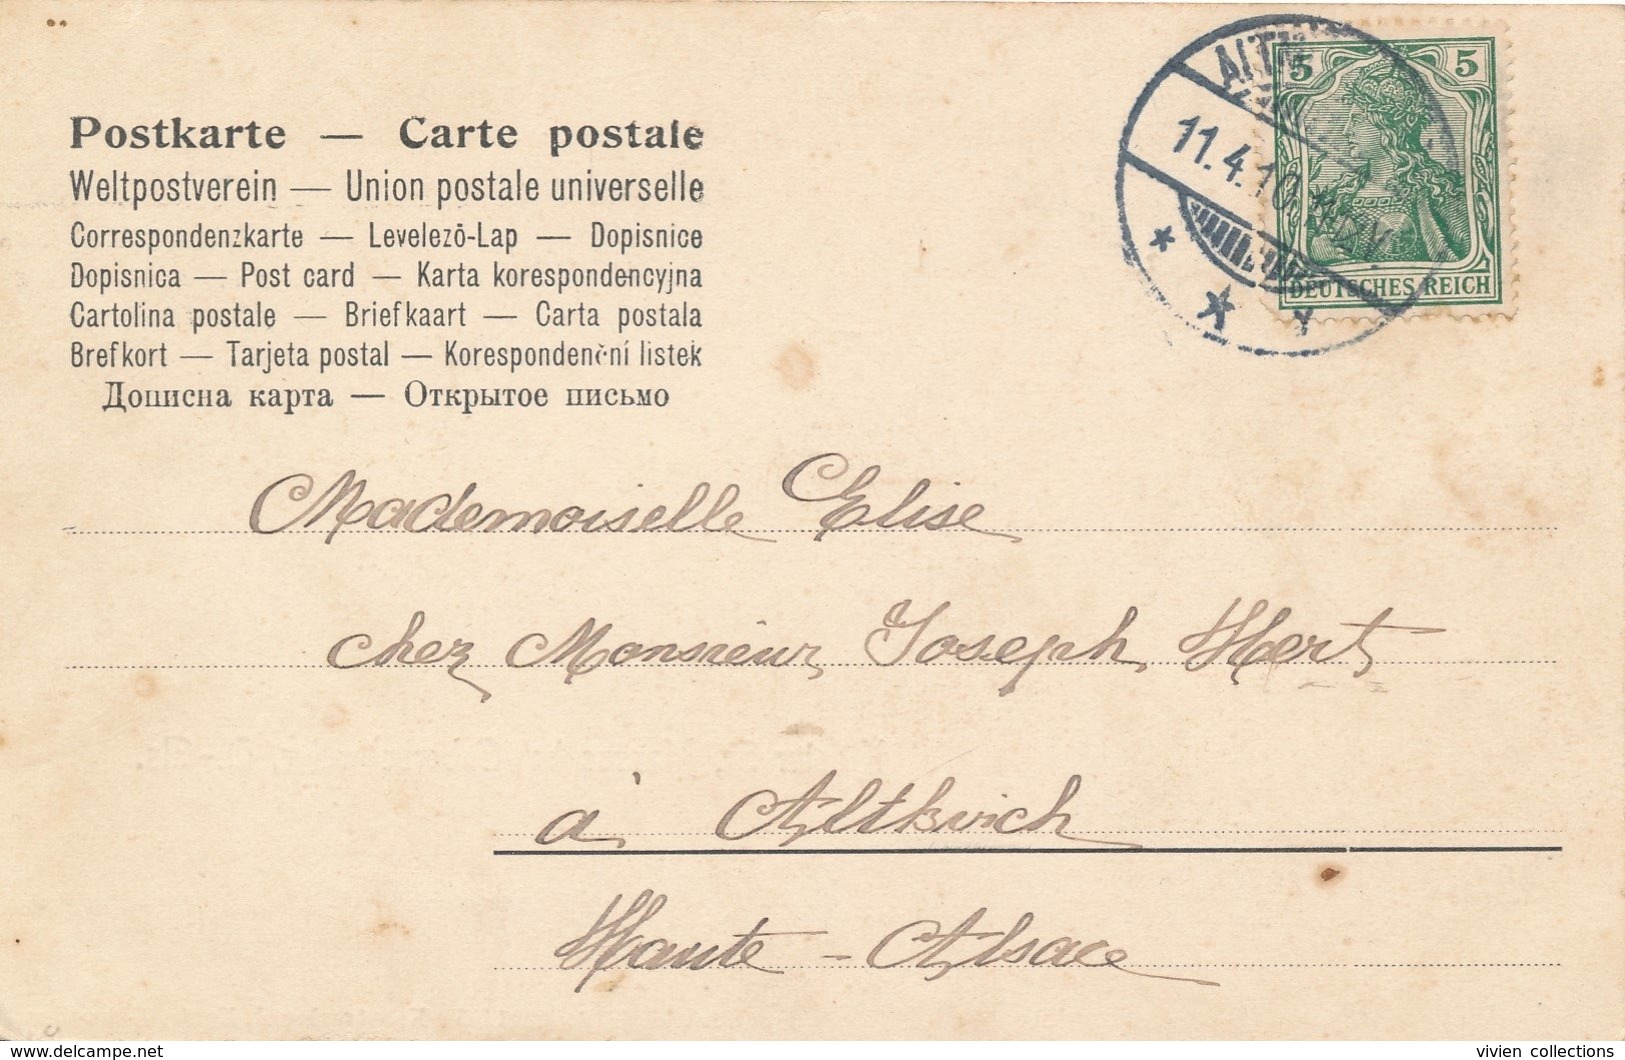 Postkarte — Carte postale
Weltpostverein — Union postale universelle
Correspondenzkarte — Levelezō-Lap — Dopisnice
Dopisnica — Post card — Karta korespondencyjna
Cartolina postale — Briefkaart — Carta postala
Brefkort — Tarjeta postal — Korespondenční listek
Дописна карта — Открытое письмо
5 5
DEUTSCHES REICH
11.4.10.
Mademoiselle Elise
chez Monsieur Joseph Hert
à Altkirch
Haute-Alsace
vivien collections
delcampe.net